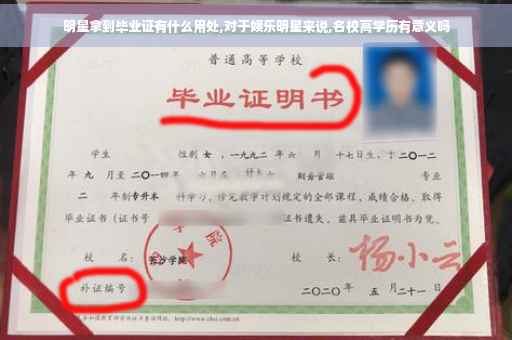 明星拿到毕业证有什么用处,对于娱乐明星来说,名校高学历有意义吗
普通高等学校
毕业证明书
学生 性别 女 ，一九九二 年 六 月 十七日生，于 二〇一二
年 九 月至 二〇一四 年 六月在 财务管理 专业
二 年制 专升本 科学习，修完教学计划规定的全部课程，成绩合格，取得
毕业证书（证书号 证书遗失，兹具毕业证明书为凭。
校 名： 长沙学院 校 长： 杨小云
补证编号 二〇二〇 年 五 月 二十一 日